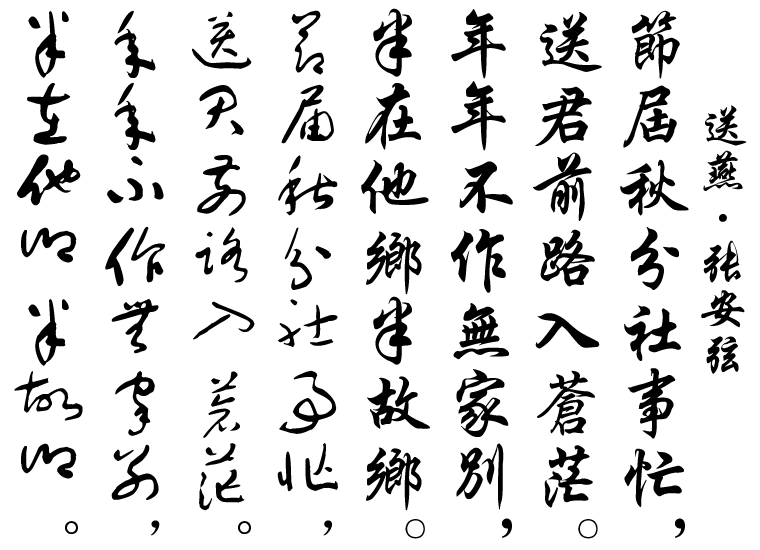 送燕·张安弦
節届秋分社事忙，
送君前路入蒼茫。
年年不作無家别，
半在他鄉半故鄉。
節届秋分社事忙，
送君前路入蒼茫。
年年不作無家别，
半在他鄉半故鄉。